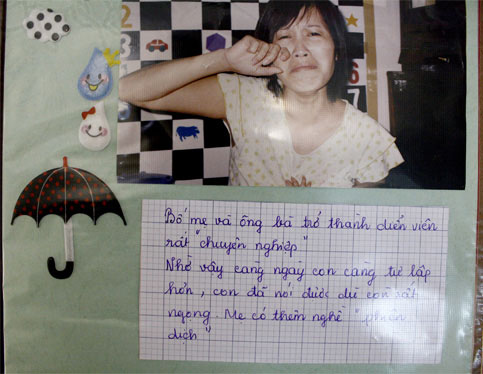 2
3
8
7
Bố mẹ và ông bà trở thành diễn viên
rất "chuyên nghiệp"
Nhờ vậy càng ngày con càng tự lập
hơn, con đã nói được dù còn rất
ngọng. Mẹ có thêm nghề "phiên
dịch"